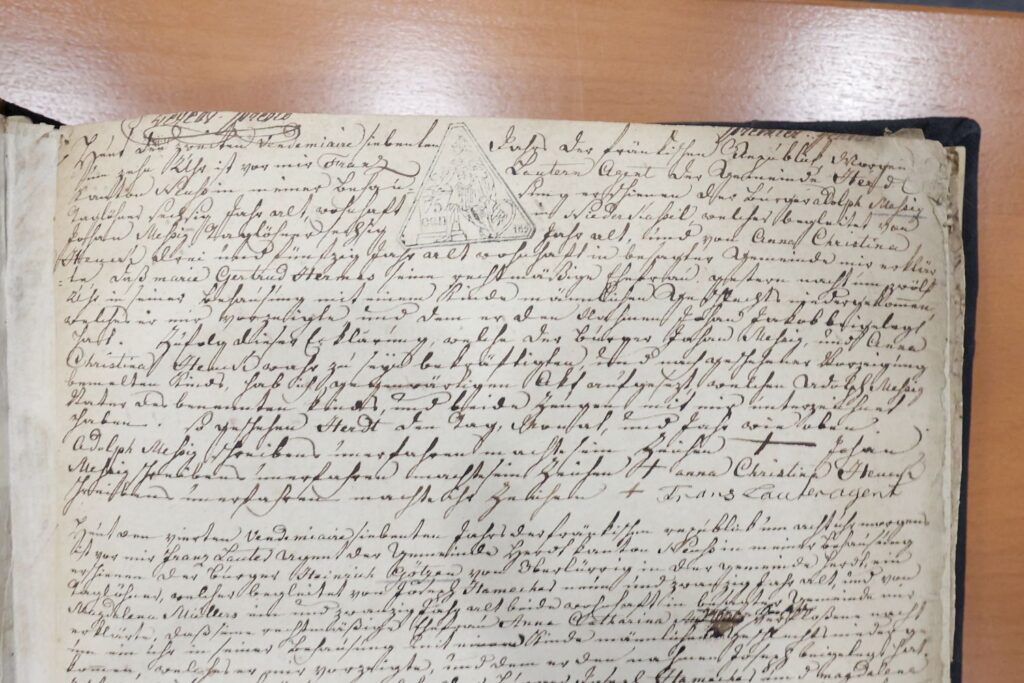 Heut den zweiten Vendemiaire siebenten Jahrs der fränkischen Republick Morgen
um zehn Uhr ist vor mir Franz Lautern Agent der Gemeinde Herdt
Kanton Neuß in meiner Behau sung erschienen der Bürger Adolph Meßig
Taglöhner sechsig Jahr alt, wohnhaft in Niederkassel, welcher begleitet von
Johan Meßig Taglöhner sechsig Jahr alt, und von Anna Christina
drei und fünfzig Jahr alt wohnhaft in besagter Gemeinde mir erklär
te, daß marie Gertrud seine rechtmäßige Ehefrau gestern nacht um zwölf
Uhr in seiner Behausung mit einem Kinde mänlichen Geschlechts niedergekommen,
welches er mir vorzeigte, und dem er den Nahmen Johan Jakob beigelegt
hatt. Zufolg dieser Erklärung, welche der Bürger Johan Meßig, und Anna
Christina wahr zu seyn bekräftigten, und nach geschehener Vorzeigung
bemelten Kinds, hab ich gegenwärtigen Akt aufgesezt, welchen Adolph Meßig
Vater des benennten Kinds, und beide Zeugen mit mir unterzeichnet
haben. So geschehen Herdt den Tag, Monat, und Jahr wie oben
Adolph Meßig schreibens unerfahren machte sein Zeichen + Johan
Meßig schreibens unerfahren machte sein Zeichen + anna Christina
schreibens unerfahren machte ihr Zeichen + Franz Lauter agent
75
162
Heut den vierten Vendemiaire siebenten Jahrs der fränkischen republick um acht uhr morgens
ist vor mir Franz Lauter Agent der Gemeinde Herdt Kanton Neuß in meiner Behausung
erschienen der bürger Heinrich Götzen von in der gemeinde Herdt, ein
Taglöhner, welcher begleitet von Joseph Hamechers neun und zwanzig Jahr alt, und von
Magdalena Müllers ein und zwanzig Jahr alt beide wohnhaft in besagter Gemeinde mir
erklärte, daß seine rechtmäßige Ehefrau Anna Catharina verfloßene nacht
um ein uhr in seiner Behausung mit einem Kinde mänlichen geschlechts nieder ge
kommen, welches er mir vorzeigte, und dem er den nahmen Joseph beigelegt hatt.
Joseph Hamechers und magdalena